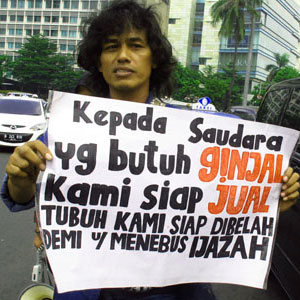 Kepada Saudara
yg butuh GINJAL
Kami siap JUAL
TUBUH KAMI SIAP DIBELAH
DEMI y MENEBUS IJAZAH